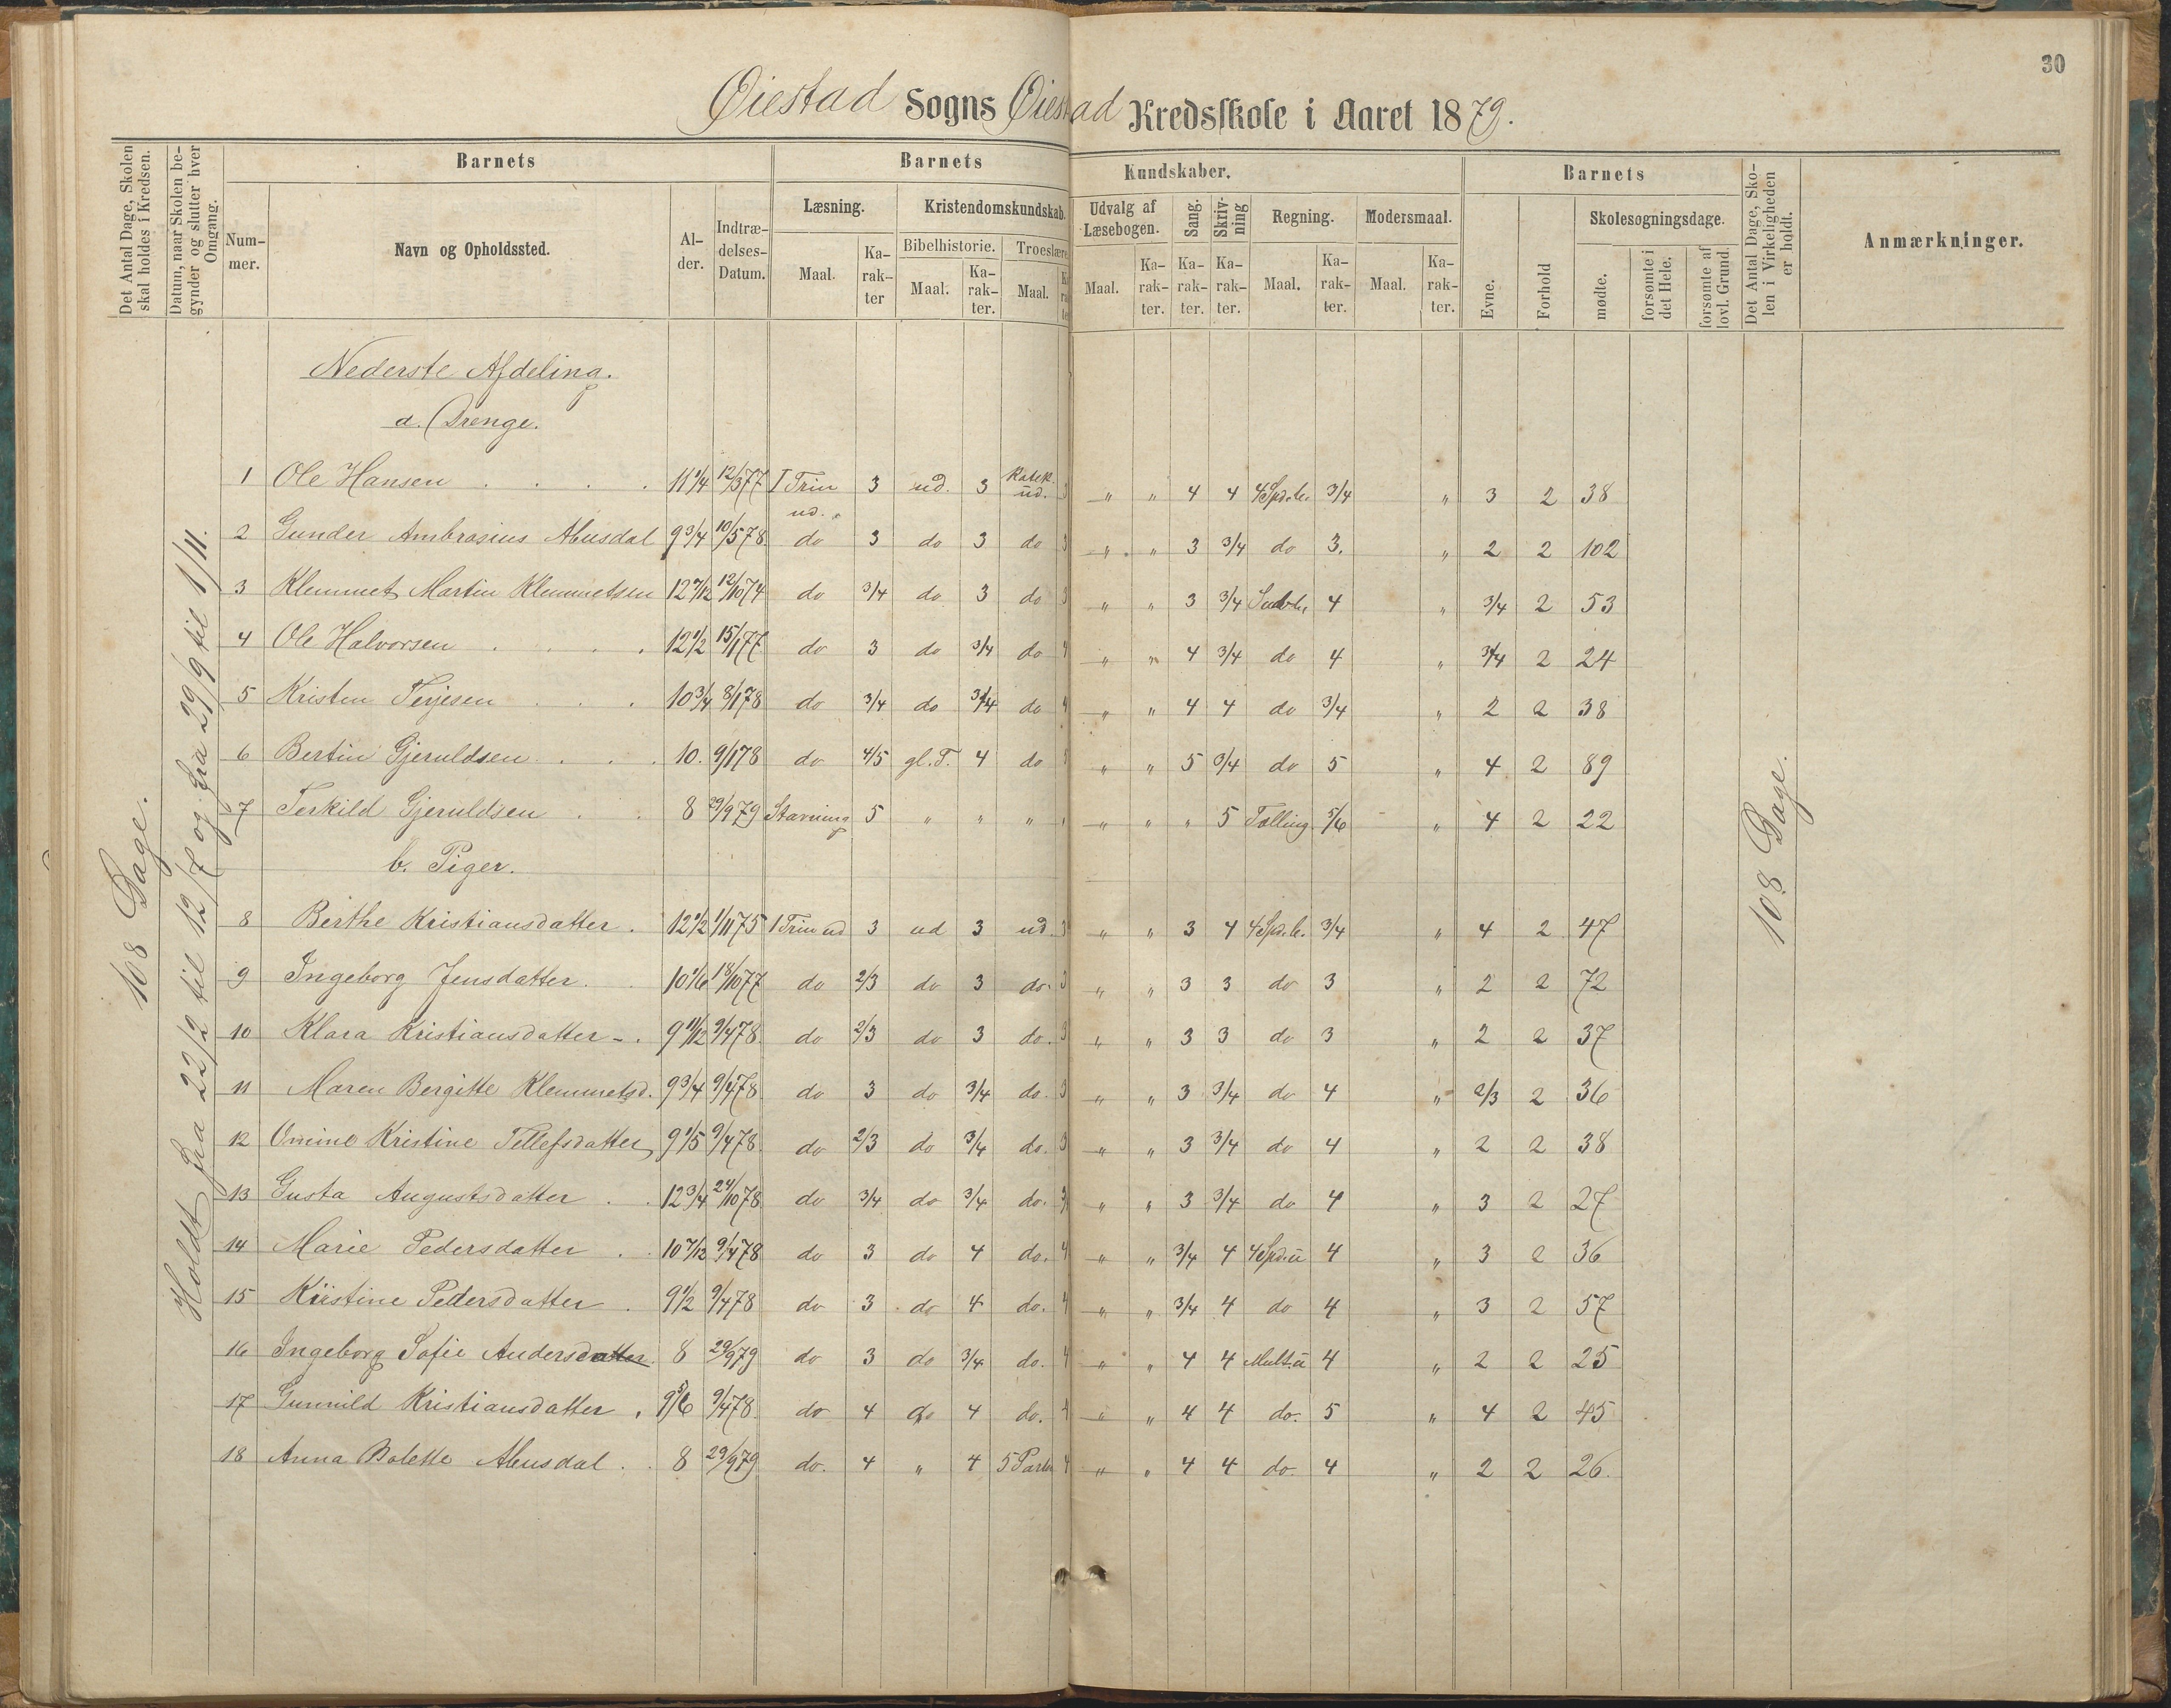 30
Øiestad Sogns Øiestad Kredsskole i Aaret 1879.
Det Antal Dage, Skolen skal holdes i Kredsen.
Datum, naar Skolen begynder og slutter hver Omgang.
Barnets
Nummer.
Navn og Opholdssted.
Alder.
Indtrædelses-Datum.
Barnets Kundskaber.
Læsning.
Maal.
Karakter
Kristendomskundskab.
Bibelhistorie.
Maal.
Karakter.
Troeslære
Maal.
Udvalg af Læsebogen.
Maal.
Karakter.
Sang.
Karakter.
Skrivning
Karakter.
Regning.
Maal.
Karakter.
Modersmaal.
Maal.
Karakter.
Barnets
Evne.
Forhold
Skolesøgningsdage.
mødte.
forsømte i det Hele.
forsømte af lovl. Grund.
Det Antal Dage, Skolen i Virkeligheden er holdt.
Anmærkninger.
108 Dage.
Holdt fra 22/2 til 12/7 og fra 29/9 til 1/11.
108 Dage.
Nederste Afdeling.
a. Drenge.
1 Ole Hansen . . . . 11 1/4 12/3 77 I Trin ud. 3 ud. 3 Katek. ud. 3 " " 4 4 3/4 " 3 2 38
2 Gunder Ambrosius Abusdal 9 3/4 10/5 78 do 3 do 3 do 3 " " 3 3/4 do 3. " 2 2 102
3 Klemmet Martin Klemmetsen 12 7/12 12/10 74 do 3/4 do 3 do 3 " " 3 3/4 4 " 3/4 2 53
4 Ole Halvorsen . . . . 12 1/2 15/1 77 do 3 do 3/4 do 4 " " 4 3/4 do 4 " 3/4 2 24
5 Kristen Terjesen . . . 10 3/4 8/1 78 do 3/4 do 3/4 do 4 " " 4 4 do 3/4 " 2 2 38
6 Bertin Gjeruldsen . . . 10. 9/1 78 do 4/5 gl. T. 4 do " " 5 3/4 do 5 " 4 2 89
7 Terkild Gjeruldsen . . 8 29/9 79 Stavning 5 " " " " " " " 5 Tælling 5/6 " 4 2 22
b. Piger.
8 Berthe Kristiansdatter . 12 1/2 1/11 75 1 Trin ud 3 ud 3 ud. 3 " " 3 4 3/4 " 4 2 47
9 Ingeborg Jensdatter . . 10 1/6 18/10 77 do 2/3 do 3 do. 3 " " 3 3 do 3 " 2 2 72
10 Klara Kristiansdatter - . 9 11/12 9/4 78 do 2/3 do 3 do. 3 " " 3 3 do 3 " 2 2 37
11 Maren Bergitte Klemmetsd. 9 3/4 9/4 78 do 3 do 3/4 do. 3 " " 3 3/4 do 4 " 2/3 2 36
12 Omine Kristine Tellefsdatter 9 1/5 9/4 78 do 2/3 do 3/4 do. 3 " " 3 3/4 do 4 " 2 2 38
13 Gusta Augustsdatter . . 12 3/4 24/10 78 do 3/4 do 3/4 do. " " 3 3/4 do 4 " 3 2 27
14 Marie Pedersdatter . . 10 7/12 9/4 78 do 3 do 4 do. 4 " " 3/4 4 4 " 3 2 36
15 Kristine Pedersdatter . 9 1/2 9/4 78 do 3 do 4 do. 4 " " 3/4 4 do 4 " 3 2 57
16 Ingeborg Sofie Andersdatter. 8 29/9 79 do 3 do 3/4 do. 4 " " 4 4 Mult. u 4 " 2 2 25
17 Gunnild Kristiansdatter . 9 5/6 9/4 78 do 4 do 4 do. 4 " " 4 4 do. 5 " 4 2 45
18 Anna Bolette Abusdal . . 8 29/9 79 do. 4 " 4 5 Parter 4 " " 4 4 do. 4 " 2 2 26.